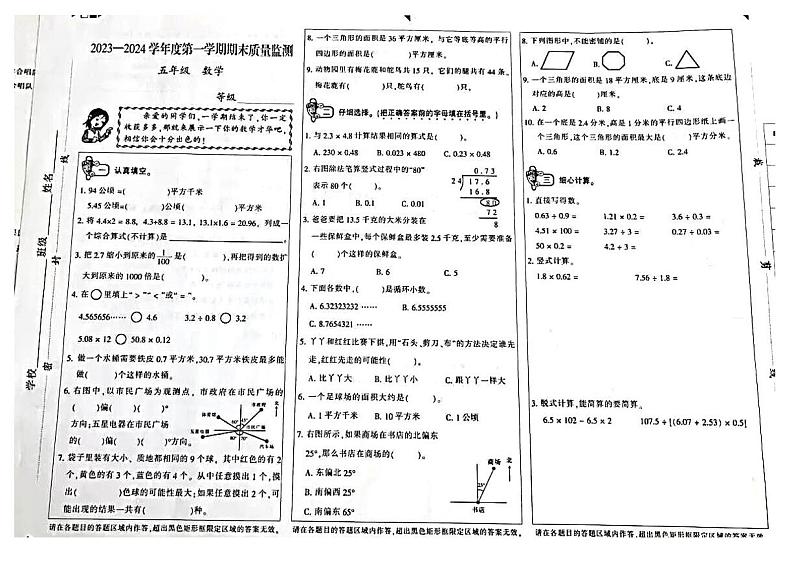 2023—2024学年度第一学期期末质量监测
五年级 数学
等级
亲爱的同学们,一学期结束了,你一定
收获多多,那就来展示一下你的数学才华吧,
相信你会十分出色的!
学校
班级
姓名
密
封
线
一 认真填空。
1. 94公顷=( )平方千米
5.45公顷=( )公顷( )平方米
2. 将4.4×2=8.8, 4.3+8.8=13.1, 13.1×1.6=20.96, 列成一
个综合算式(不计算)是
3. 把2.7缩小到原来的1/100是( ),再把得到的数扩
大到原来的1000倍是( )。
4. 在○里填上“>”“<”或“=”。
4.565656…… ○ 4.6 3.2÷0.8 ○ 3.2
5.08×12 ○ 50.8×0.12
5. 做一个水桶需要铁皮0.7平方米,30.7平方米铁皮最多能
做( )个这样的水桶。
6. 右图中,以市民广场为观测点,市政府在市民广场的
( )偏( )( )°
方向;五星电器在市民广场
的( )偏( )( )°方向。
北
市政府
体育馆
市民广场
五星电器
汽车站
7. 袋子里装有大小、质地都相同的9个球,其中红色的有2
个,黄色的有3个,蓝色的有4个。从中任意摸出1个,摸
出( )色球的可能性最大;如果任意摸出2个,可
能出现的结果一共有( )种。
请在各题目的答题区域内作答,超出黑色矩形框限定区域的答案无效。
8. 一个三角形的面积是36平方厘米,与它等底等高的平行
四边形的面积是( )平方厘米。
9. 动物园里有梅花鹿和鸵鸟共15只,它们的腿共有44条。
梅花鹿有( )只,鸵鸟有( )只。
二 仔细选择。(把正确答案前的字母填在括号里。)
1. 与2.3×4.8计算结果相同的算式是( )。
A. 230×0.48 B. 0.023×480 C. 0.23×0.48
2. 右图除法笔算竖式过程中的“80”
表示80个( )。
A. 1 B. 0.1 C. 0.01
0.73
24 17.6
16.8
80
72
8
3. 爸爸要把13.5千克的大米分装在
一些保鲜盒中,每个保鲜盒最多装2.5千克,至少需要准备
( )个这样的保鲜盒。
A. 7 B. 6 C. 5
4. 下面各数中,( )是循环小数。
A. 6.32323232…… B. 6.5555555
C. 8.7654321……
5. 丫丫和红红比赛下棋,用“石头、剪刀、布”的方法决定谁先
走,红红先走的可能性( )。
A. 比丫丫大 B. 比丫丫小 C. 跟丫丫一样大
6. 一个足球场的面积大约是( )。
A. 1平方千米 B. 10平方米 C. 1公顷
7. 右图所示,如果商场在书店的北偏东
25°,那么书店在商场的( )。
A. 东偏北25°
B. 南偏西25°
C. 南偏东65°
商场
北
25°
书店
请在各题目的答题区域内作答,超出黑色矩形框限定区域的答案无效。
8. 下列图形中,不能密铺的是( )。
A. B. C.
9. 一个三角形的面积是18平方厘米,底是9厘米,这条底边
对应的高是( )厘米。
A. 2 B. 8 C. 4
10. 在一个底是2.4分米,高是1分米的平行四边形纸上画一
个三角形,这个三角形的面积最大是( )平方分米。
A. 0.6 B. 1.2 C. 2.4
三 细心计算。
1. 直接写得数。
0.63÷0.9= 1.21×0.2= 3.6÷0.3=
4.51×100= 3.27÷3= 0.27÷0.03=
50×0.2= 4.2÷3=
2. 竖式计算。
1.8×0.62= 7.56÷1.8=
3. 脱式计算,能简算的要简算。
6.5×102-6.5×2 107.5÷[(6.07+2.53)×0.5]
请在各题目的答题区域内作答,超出黑色矩形框限定区域的答案无效。